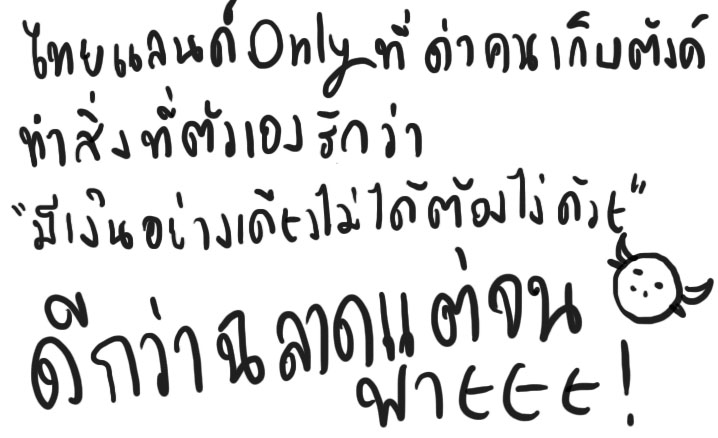 ไทยแลนด์Onlyที่ ด่าคนเก็บตังค์
ทำสิ่งที่ตัวเองรักว่า
"มีเงินอย่างเดียวไม่ได้ต้องโง่ด้วย"
ดีกว่าฉลาดแต่จน
ฟายยย!